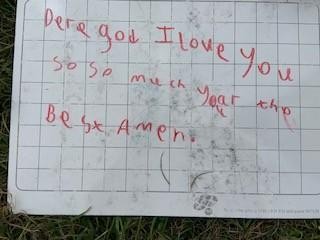 Dere god I love you
so so much year the
Best. Amen.